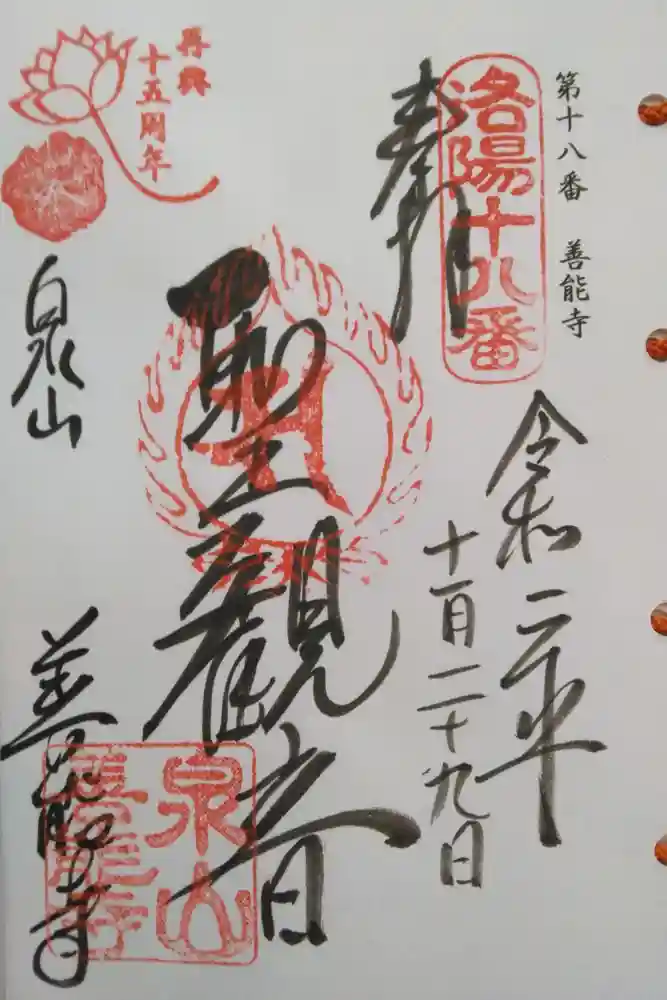 第十八番 善能寺
洛陽十八番
奉拝
令和二年
十一月二十九日
聖観音
再興
十五周年
泉山
善能寺
泉山
善能寺